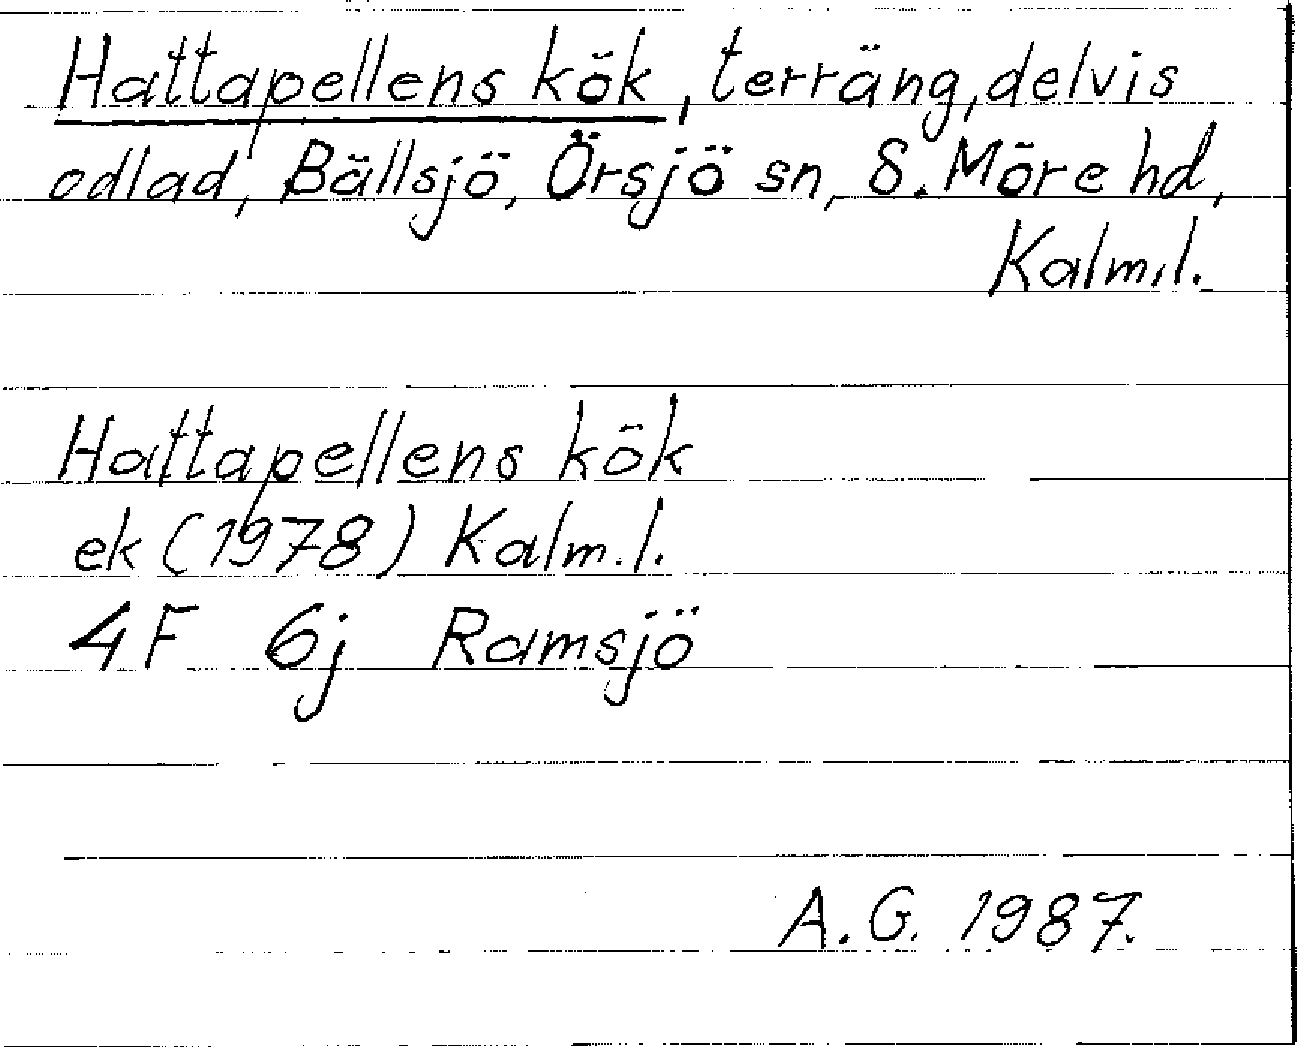 Hattapellens kök, terräng, delvis
odlad, Bällsjö, Örsjö sn, S. Möre hd,
Kalm.l.
Hattapellens kök
ek (1978) Kalm.l.
4F 6j Ramsjö
A.G. 1987.